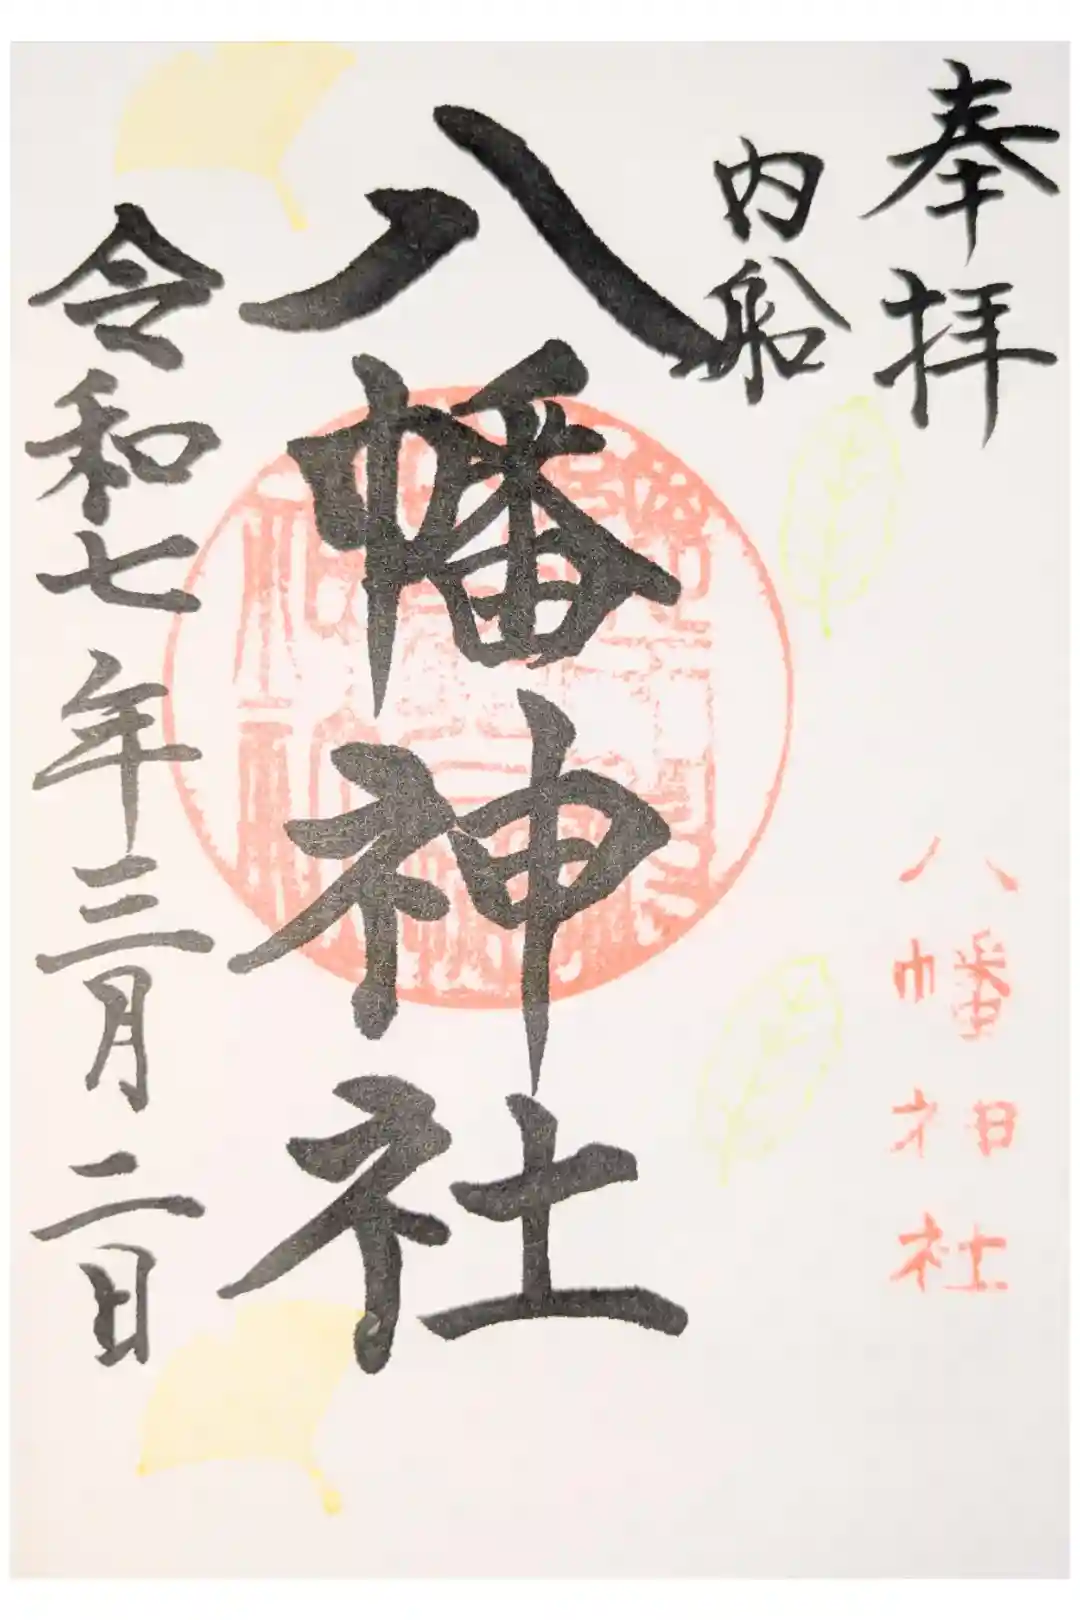 奉拝
八幡神社
内船
八幡神社
令和七年三月二日